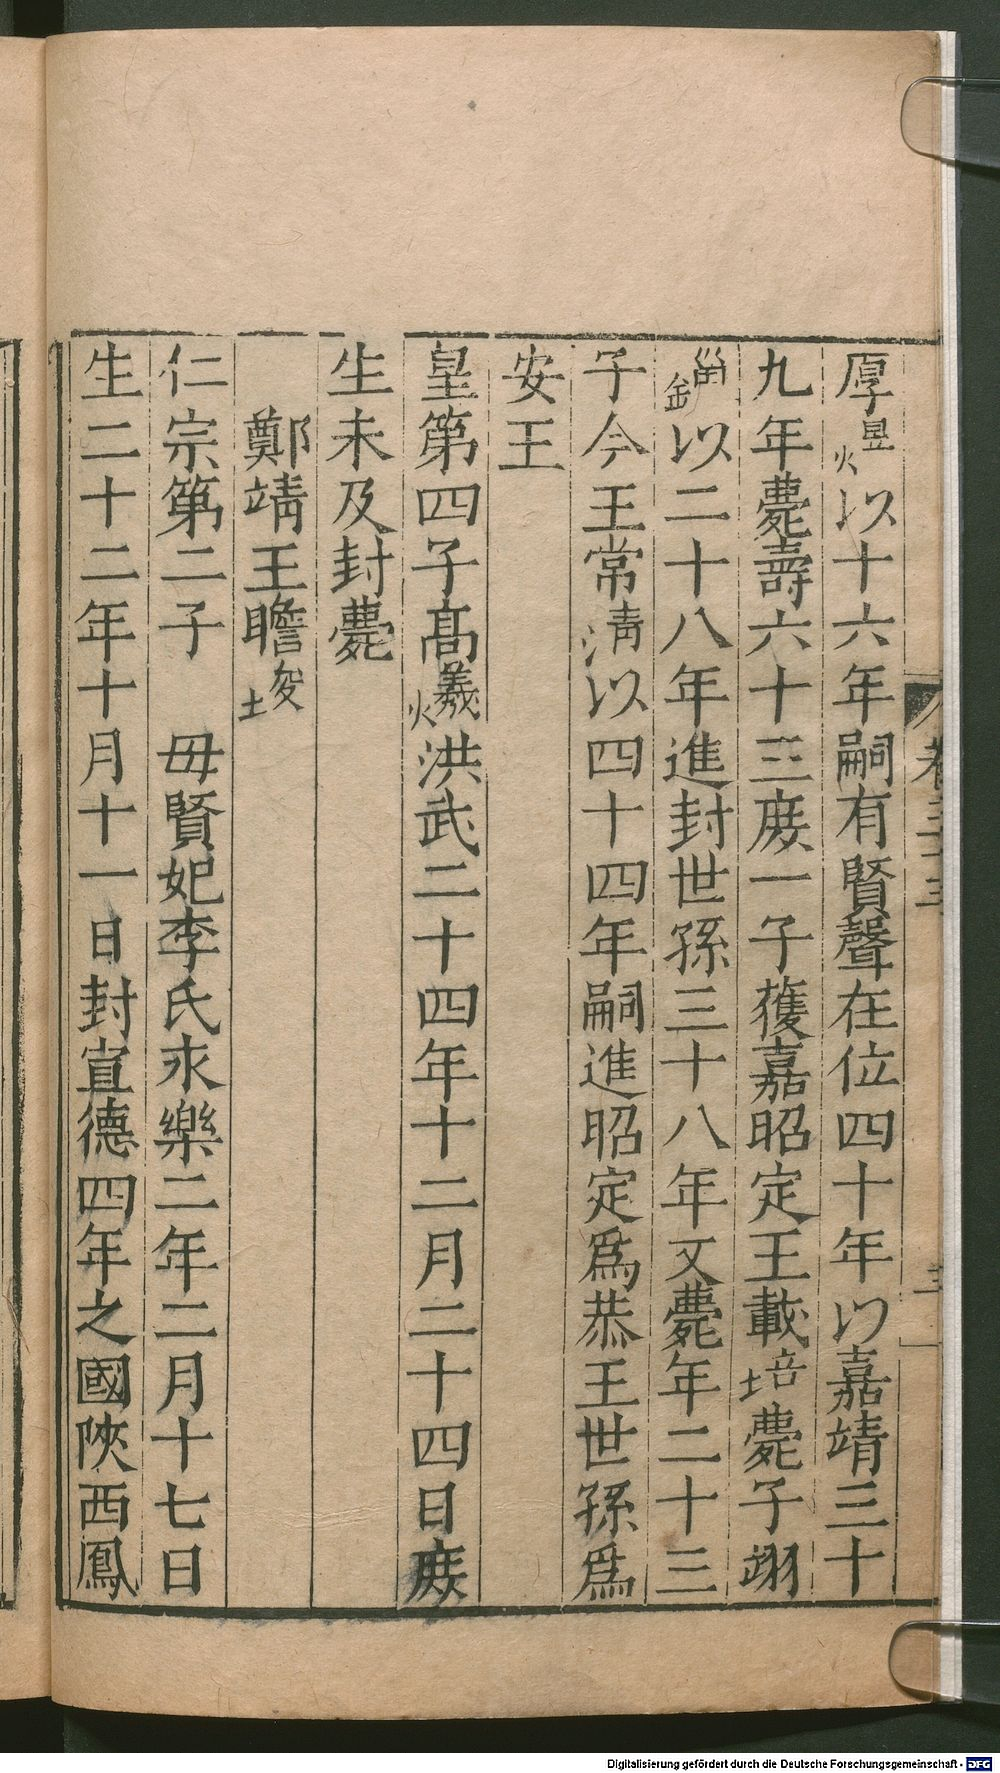 厚煜以十六年嗣有賢聲在位四十年以嘉靖三十
九年薨壽六十三庻一子獲嘉昭定王載培薨子翊
錙以二十八年進封世孫三十八年文薨年二十三
子今王常清以四十四年嗣進昭定爲恭王世孫爲
安王
皇第四子髙爔洪武二十四年十二月二十四日庻
生未及封薨
鄭靖王瞻埈
仁宗第二子　毋賢妃李氏永樂二年二月十七日
生二十二年十月十一日封宣德四年之國陜西鳳
Digitalisierung gefördert durch die Deutsche Forschungsgemeinschaft - DFG